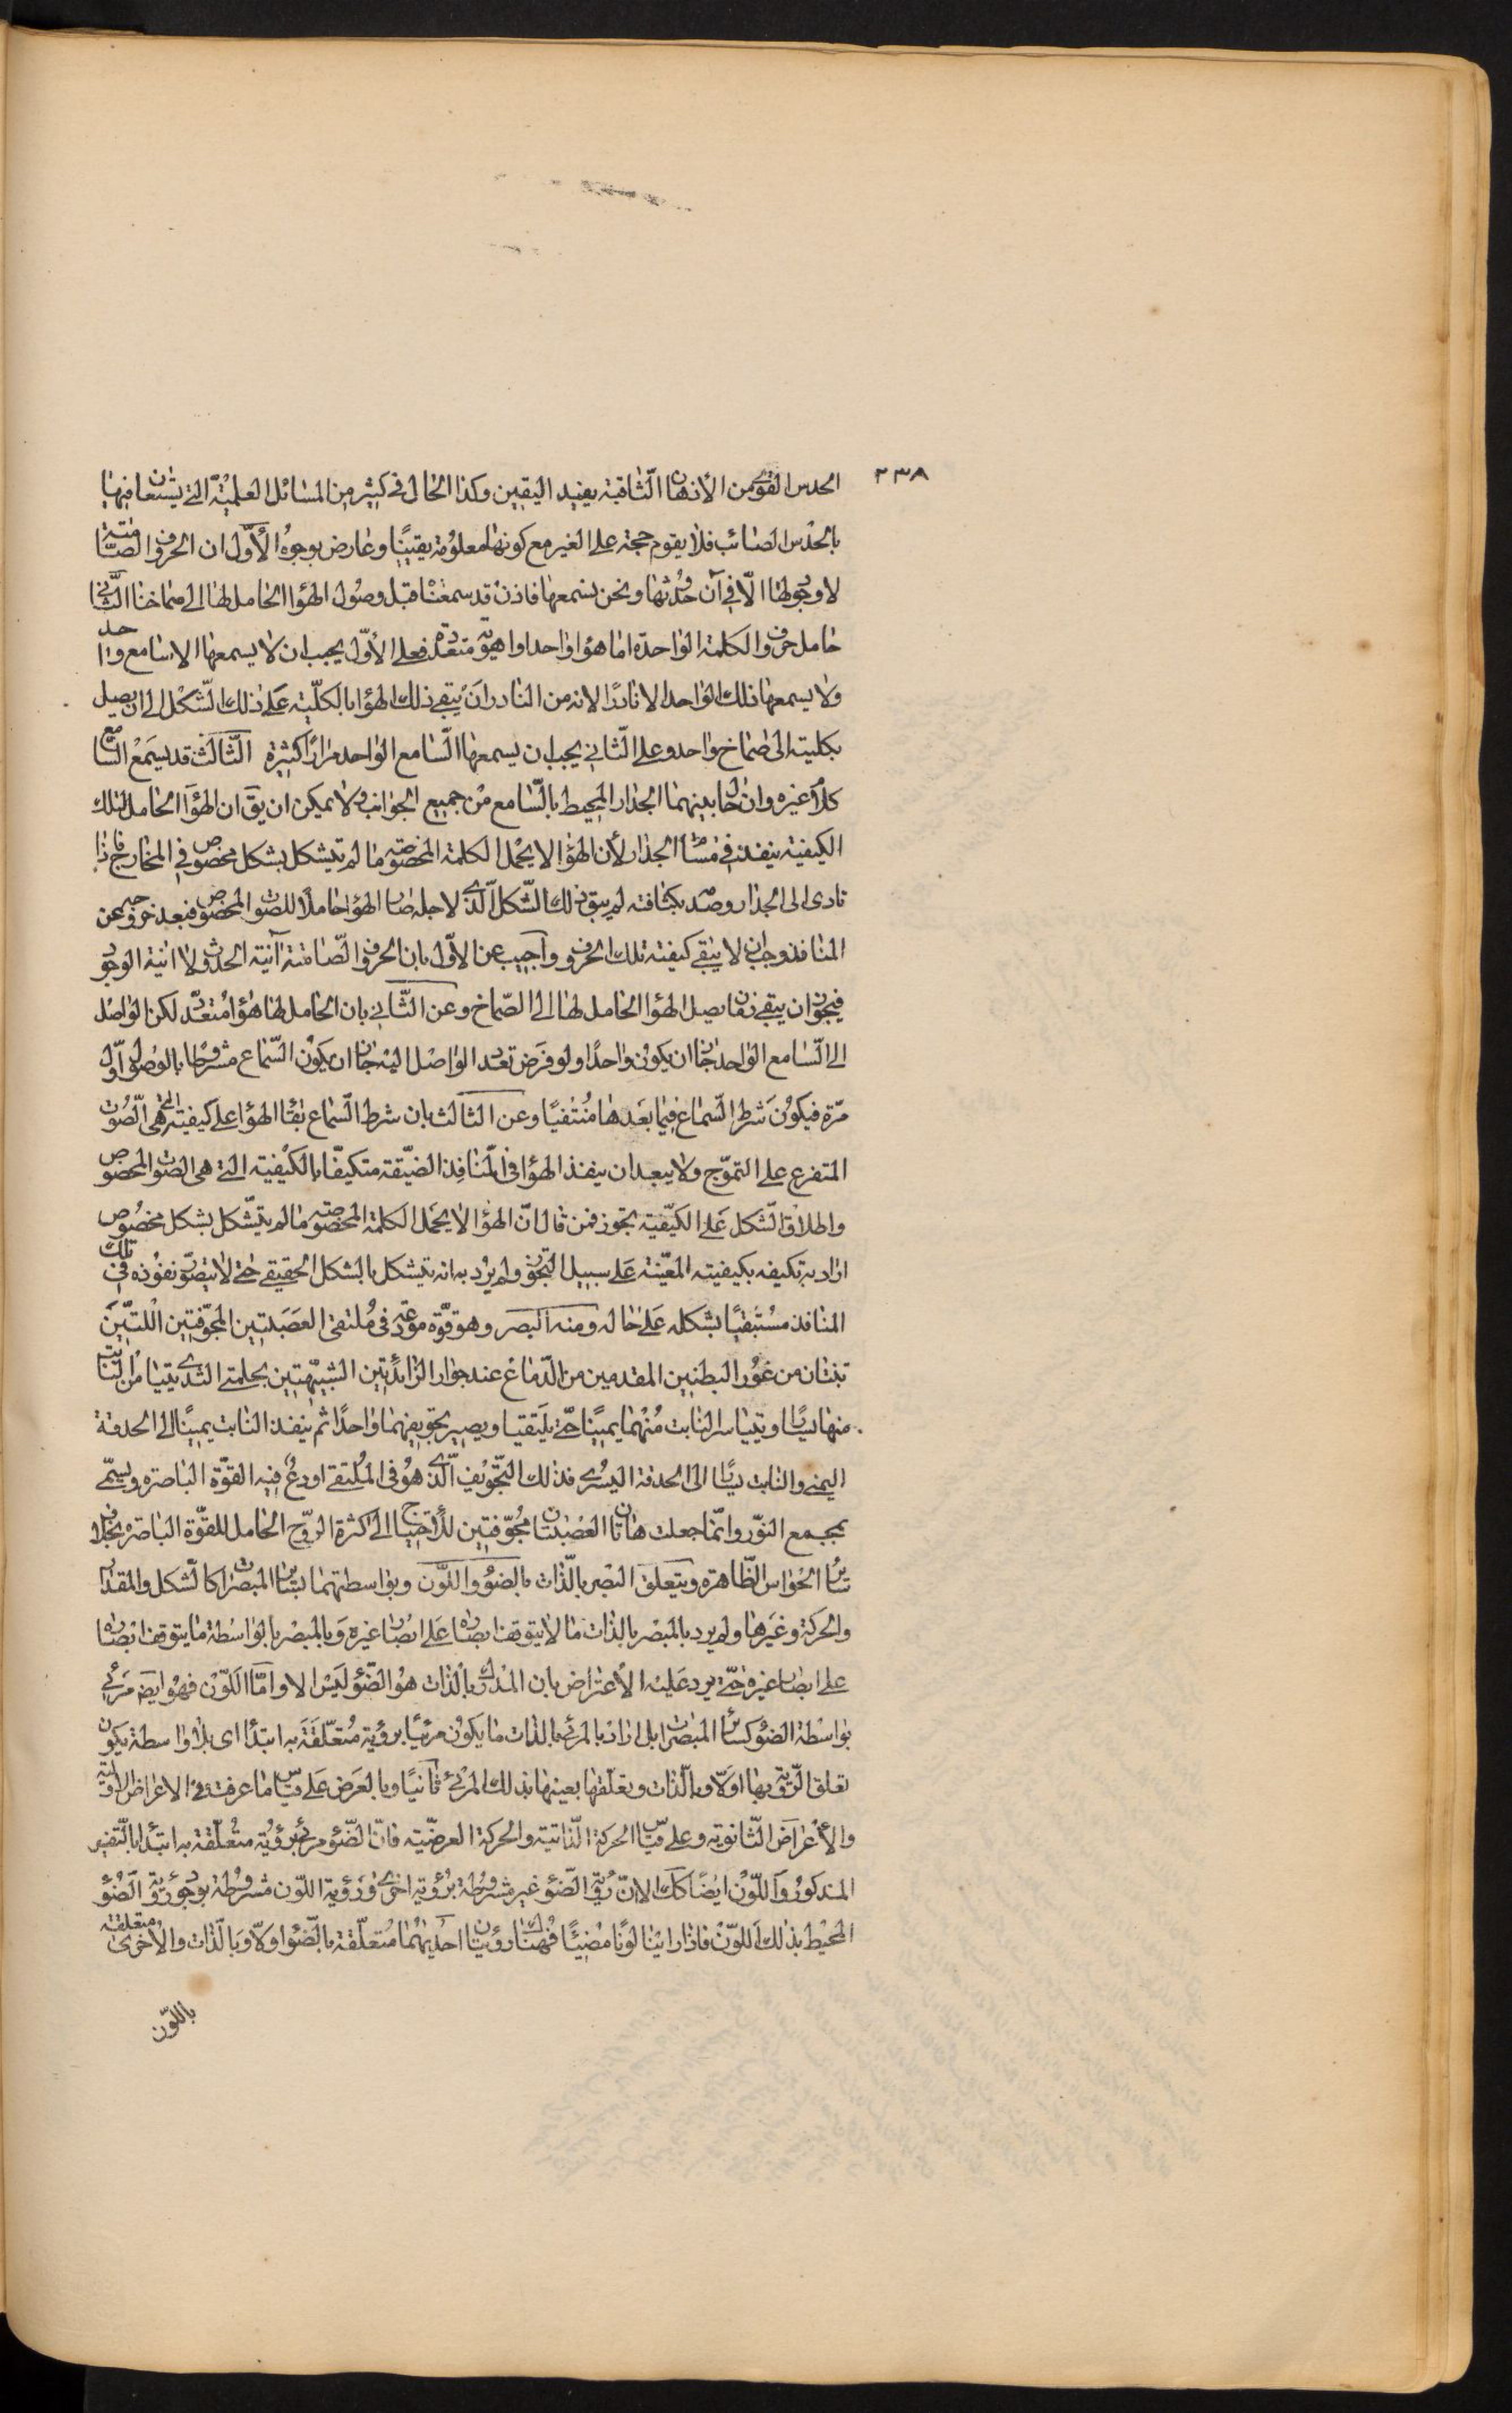 ٢٣٨
الحدس القوی من الأذهان الثاقبة يفيد اليقين وكذا الحال فی كثير من المسائل العلمیّة التی يستعان فيها
بالحدس الصائب فلا يقوم حجة علی الغير مع كونها معلومة يقينًا وعارض بوجوه الأوّل ان الحروف الصامتة
لا وجود لها الّا فی آن حدوثها ونحن نسمعها فاذن قد سمعنا قبل وصول الهواء الحامل لها الی صماخنا الثانی
حامل حروف الكلمة الواحدة اما هواء واحد او اهوية متعدّدة فعلی الأوّل يجب ان لا يسمعها الا سامع واحد
ولا يسمعها ذلك الواحد الا نادرًا لانه من النادر ان يبقی ذلك الهواء بالكلّية علی ذلك الشكل الی ان يصل
بكليته الی صماخ واحد وعلی الثانی يجب ان يسمعها السامع الواحد مرارًا كثيرة الثالث قد يسمع السامع
كلام غيره وان حال بينهما الجدار المحيط بالسامع من جميع الجوانب ولا يمكن ان يق ان الهواء الحامل لتلك
الكيفية ينفذ فی مسام الجدار لأن الهواء لا يحمل الكلمة المخصوصة ما لم يتشكل بشكل مخصوص فی المخارج فاذا
تادی الی الجدار وصدّ بكثافته لم يبق ذلك الشكل الّذی لاجله صار الهواء حاملًا للصوت المخصوص فبعد خروجه عن
المنافذ وجب ان لا يبقی كيفية تلك الحروف واجيب عن الاوّل بان الحروف الصّامتة آنية الحدوث لا انية الوجود
فيجوز ان يبقی زمان يصل الهواء الحامل لها الی الصّماخ وعن الثّانی بان الحامل لها هواء متعدّد لكن الواصل
الی السّامع الواحد جاز ان يكون واحدًا ولو فرض تعدد الواصل اليه جاز ان يكون السّماع مشروطا بالوصول اوّل
مرّة فيكون شرط السّماع فيما بعدها منتفيًا وعن الثالث بان شرط السّماع بقاء الهواء علی كيفيته التی هی الصّوت
المتفرع علی التموّج ولا يبعد ان ينفذ الهواء فی المنافذ الضيّقة متكيفًا بالكيفية التی هی الصوت المخصوص
واطلاق الشكل علی الكيفية تجوز فمن قال انّ الهواء لا يحمل الكلمة المخصوصة ما لم يتشكل بشكل مخصوص
اراد به تكيفه بكيفيته المعيّنة علی سبيل التجوز ولم يرد به انه يتشكل بالشكل الحقيقی حتی لا يتصوّر نفوذه فی تلك
المنافذ مستبقيًا بشكله علی حاله ومنه البصر وهو قوّة مودعة فی ملتقی العصبتين المجوّفتين اللتين
تنبتان من غور البطنين المقدمين من الدّماغ عند جوار الزائدتين الشبيهتين بحلمتی الثدی يتيامن النابت
منها يسارًا ويتياسر النابت منهما يمينًا حتّی يلتقيا ويصير تجويفهما واحدًا ثم ينفذ النابت يمينًا الی الحدقة
اليمنی والنابت يسارًا الی الحدقة اليسری فذلك التّجويف الّذی هو فی الملتقی اودع فيه القوّة الباصرة ويسمّی
بمجمع النّور وانّما جعلت هاتان العصبتان مجوّفتين للأحتياج الی كثرة الروح الحامل للقوّة الباصرة بخلاف
سائر الحواس الظّاهرة ويتعلق البصر بالذّات بالضوء واللّون وبواسطتهما بسائر المبصرات كالشكل والمقدار
والحركة وغيرها ولم يرد بالمبصر بالذّات ما لا يتوقف ابصاره علی ابصار غيره وبالمبصر بالواسطة ما يتوقف ابصاره
علی ابصار غيره حتّی يرد عليه الأعتراض بان المدرك بالذّات هو الضّوء ليس الا وامّا اللّون فهو ايضًا مرئی
بواسطة الضوء كسائر المبصرات بل اراد بالمرئی بالذات ما يكون مرئيًا برؤية متعلّقة به ابتداءً ای بلا واسطة يكون
تعلق الرّؤية بها اوّلًا وبالذّات وتعلّقها بعينها بذلك المرئی ثانيًا وبالعرض علی قياس ما عرفت فی الاعراض الاوّلية
والأعراض الثّانوية وعلی قياس الحركة الذّاتية والحركة العرضيّة فانّ الضّوء مرئی برؤية متعلّقة به ابتداءً بالتّفسير
المذكور واللّون ايضًا كك الا انّ رؤية الضّوء غير مشروطة برؤية اخری ورؤية اللّون مشروطة بوجود رؤية الضّوء
المحيط بذلك اللّون فاذا راينا لونًا مضيئًا فهناك رؤيتان احديهما متعلّقة بالضّوء اوّلًا وبالذّات والأخری متعلقة
باللّون